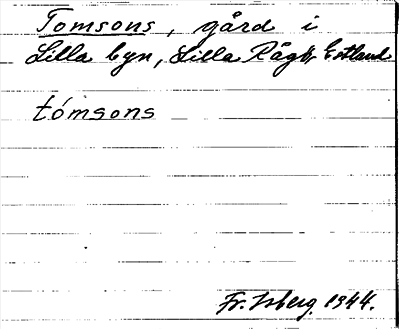 Tomsons, gård i
Lilla byn, Lilla Rågö, Estland
tómsons
Fr. Isberg 1944.